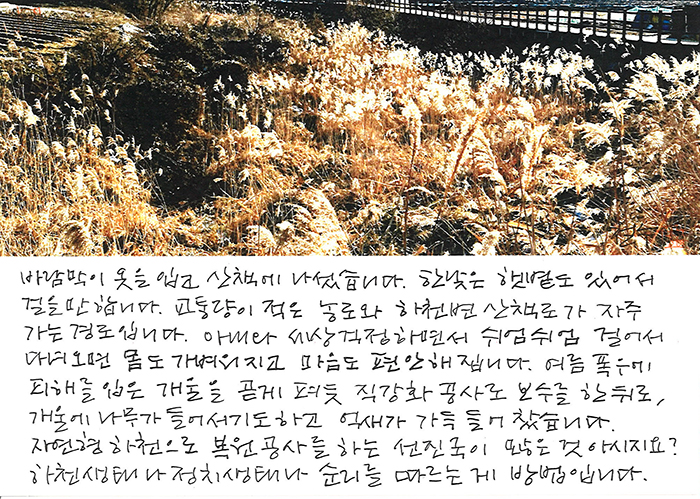 바람막이 옷을 입고 산책에 나섰습니다. 한낮은 햇볕도 있어서
걸을만 합니다. 교통량이 적은 농로와 하천변 산책로가 자주
가는 경로입니다. 아내와 세상걱정하면서 쉬엄쉬엄 걸어서
다녀오면 몸도 가벼워지고 마음도 편안해집니다. 여름 폭우에
피해를 입은 개울을 곧게 펴듯 직강화 공사로 보수를 한 뒤로,
개울에 나무가 들어서기도하고 억새가 가득 들어 찼습니다.
자연형 하천으로 복원공사를 하는 선진국이 많은 것 아시지요?
하천생태나 정치생태나 순리를 따르는게 방법입니다.